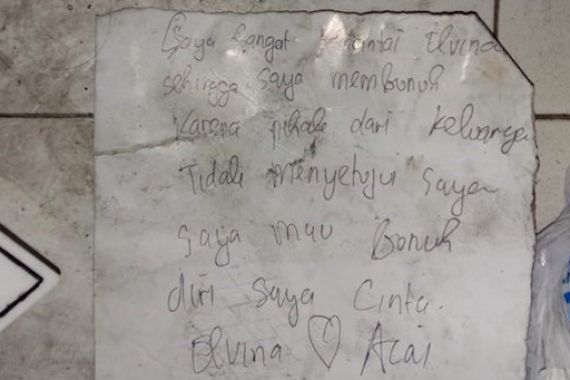 Saya sangat mencintai Elvina
sehingga saya membunuh
Karena pihak dari keluarga
Tidak menyetujui saya
saya mau bunuh
diri saya cinta.
Elvina ♡. Acai